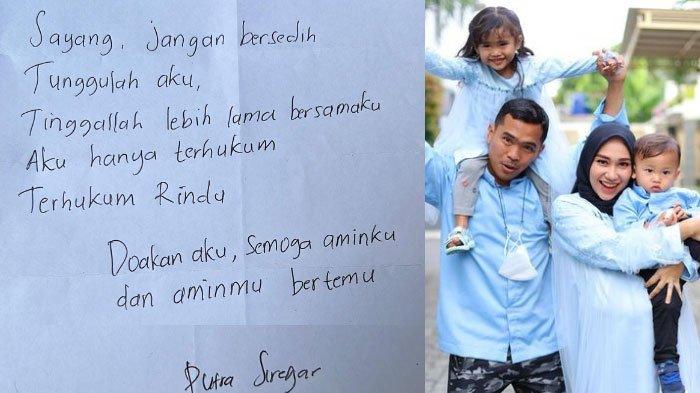 Sayang, jangan bersedih
Tunggulah aku,
Tinggallah lebih lama bersamaku
Aku hanya terhukum
Terhukum Rindu
Doakan aku, semoga aminku
dan aminmu bertemu
Putra Siregar